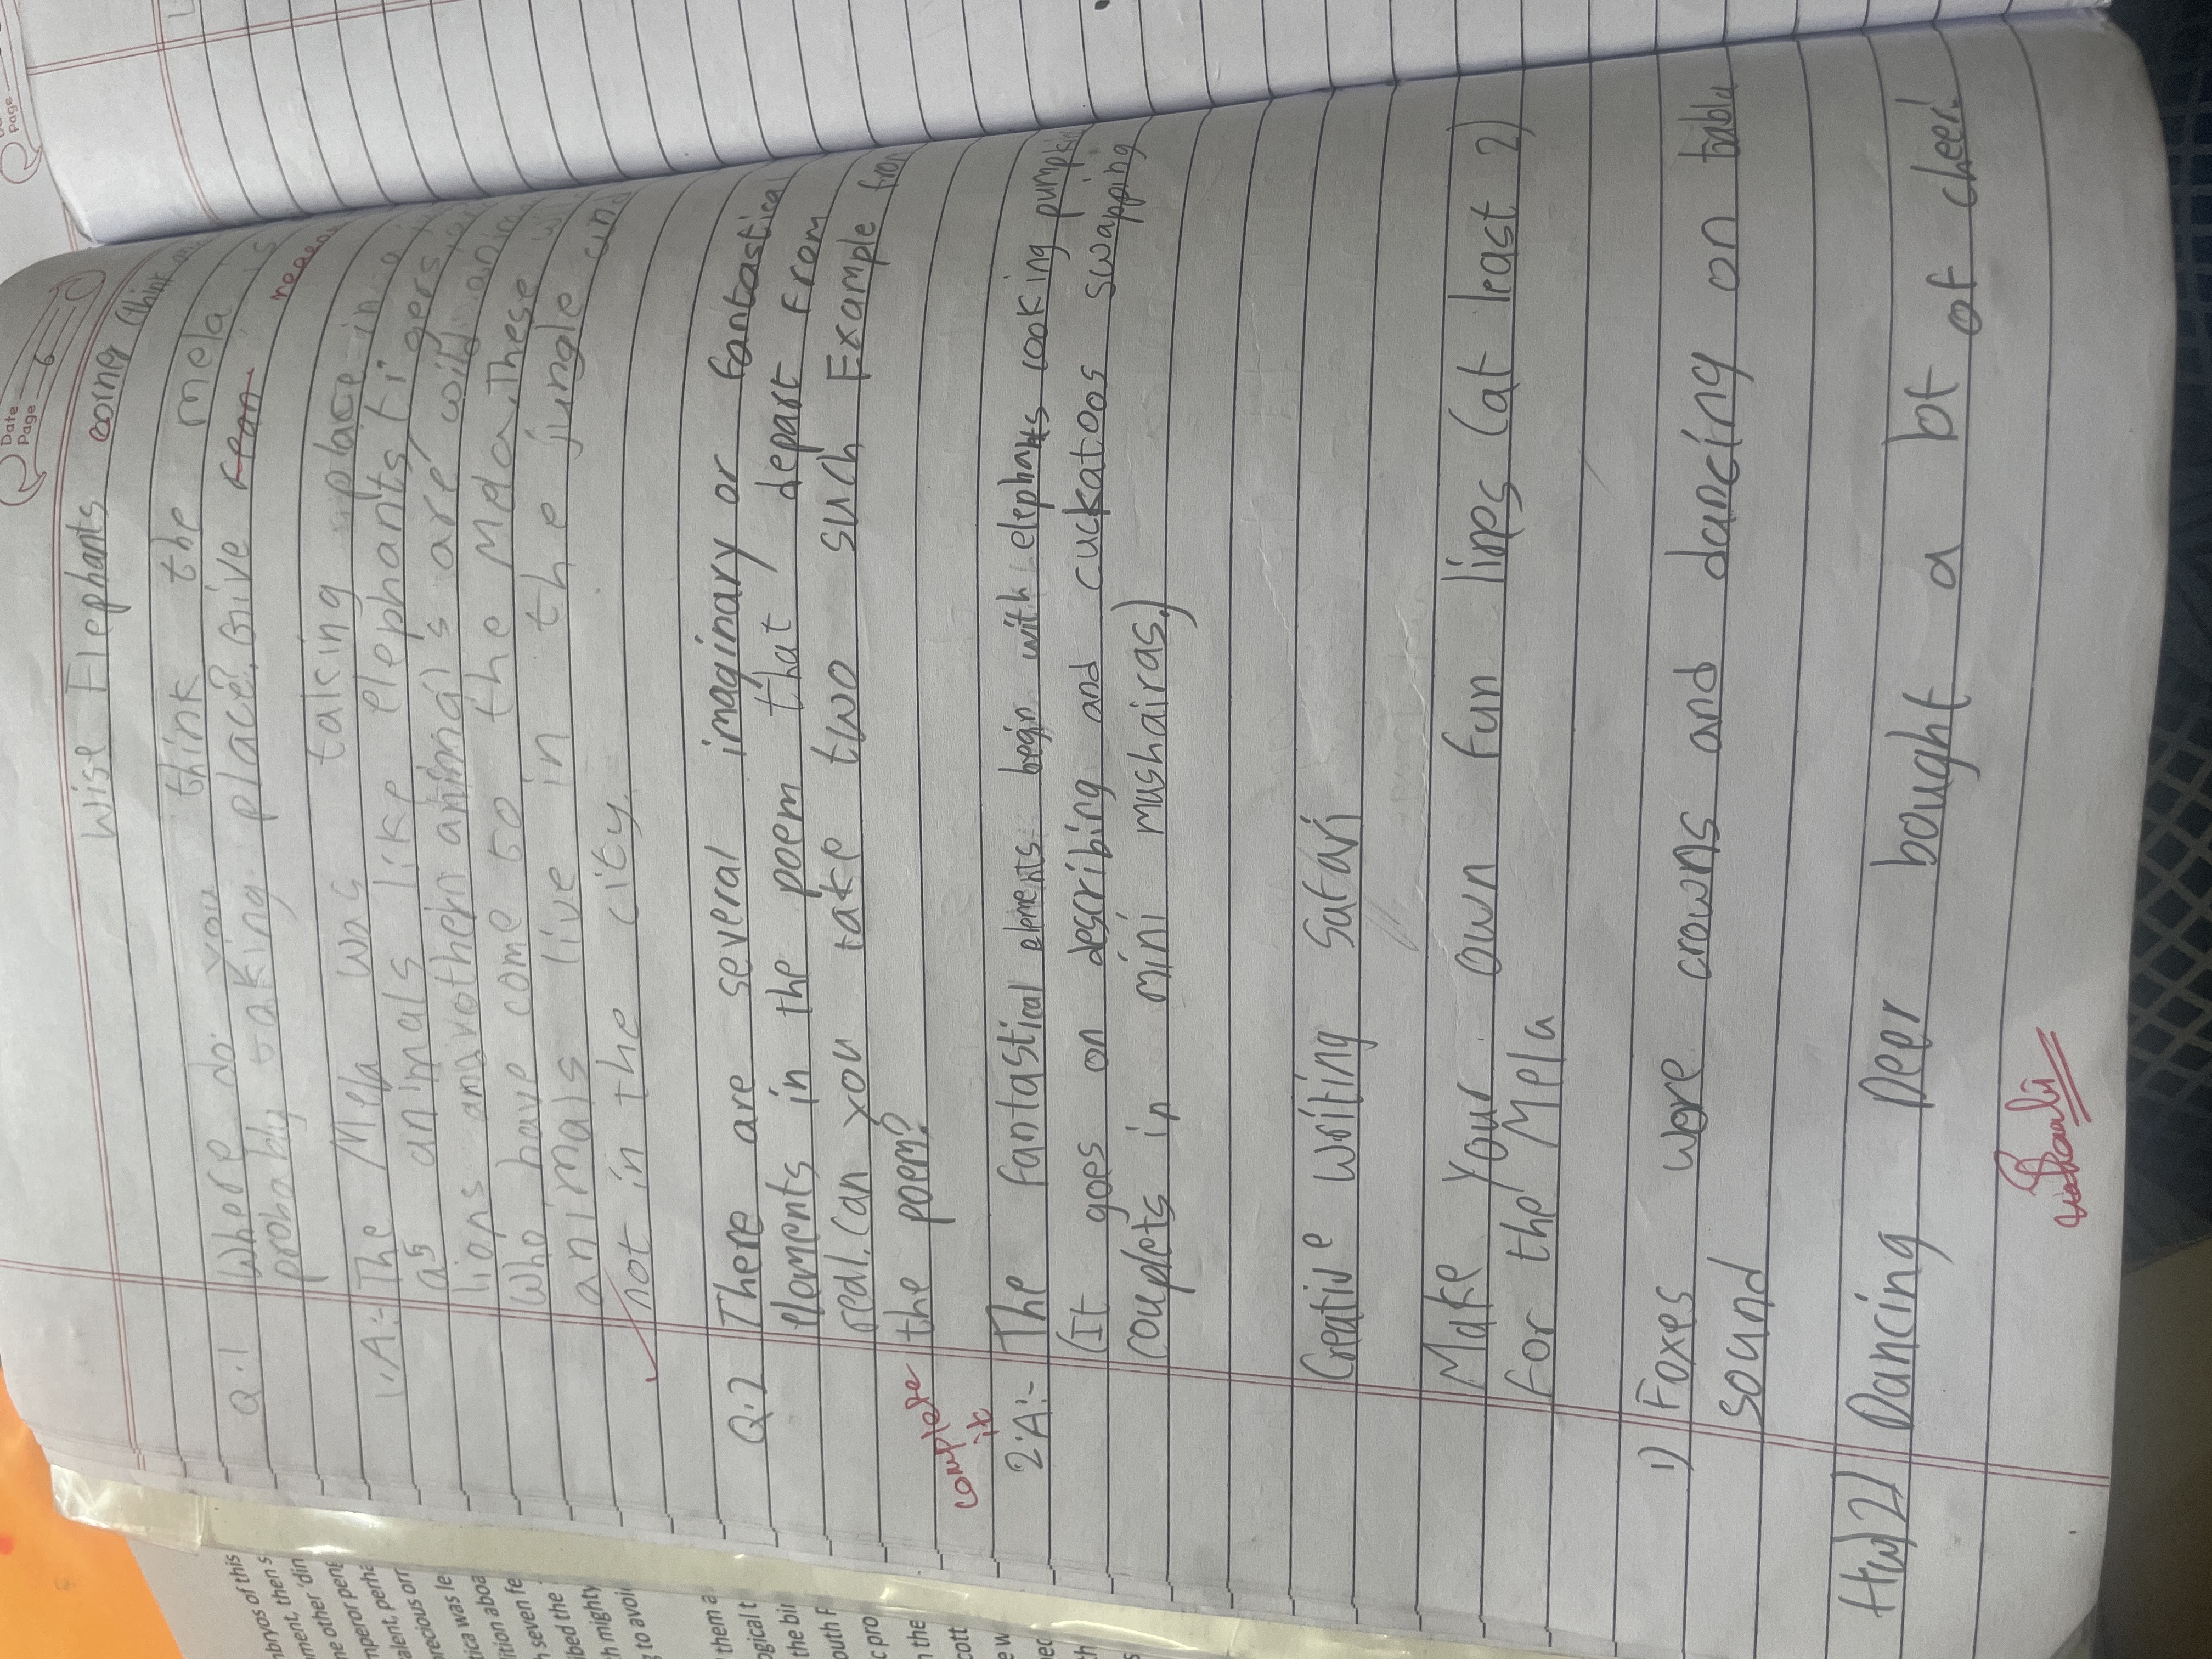 Date
Page 6
Wise Elephants coming (think
Q.1 Where do you think the mela is
probably taking place? Give rean. reason
1.A:- The Mela was taking place in a
as animals like elephants, tigers,
lions and
who have come to the Mela. These
animals live in the jungle and
not in the city.
Q.2 There are several imaginary or fantastical
elements in the poem that depart from
real. Can you take two such Example from
the poem?
complete
it
2.A:- The fantastical elements begin with elephants cooking pumpkin
(It goes on describing and cuckatoos swapping
couplets in mini mushairas.)
Creative writing Safari
Make your own fun lines (at least 2)
For the Mela
1) Foxes wore crowns and dancing on
sound
Hw 2) Dancing Deer bought a bt of cheer!
Page
mbryos of this
ment, then s
me other 'din
mperor peng
alent, perha
precious orn
tica was le
ition aboa
h seven fe
ibed the
h mighty
g to avoid
them a
ogical t
the bir
outh P
c pro
n the
cott
e w